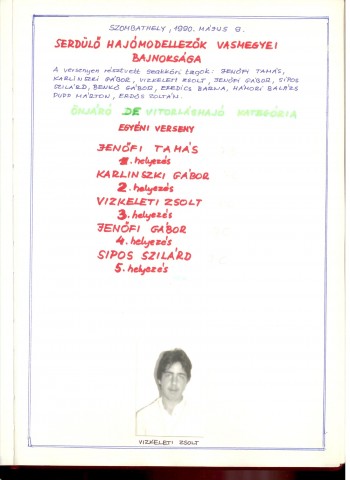 SZOMBATHELY, 1990. MÁJUS 9.
SERDÜLŐ HAJÓMODELLEZŐK VASMEGYEI
BAJNOKSÁGA
A versenyen résztvett szakköri tagok: JENŐFI TAMÁS,
KARLINSZKI GÁBOR, VIZKELETI ZSOLT, JENŐFI GÁBOR, SIPOS
SZILÁRD, BENKŐ GÁBOR, BARNA, HÁMORI BALÁZS
DUDD MÁRTON, ERDŐS ZOLTÁN.
ÖNJÁRÓ DE VITORLÁSHAJÓ KATEGÓRIA
EGYÉNI VERSENY
JENŐFI TAMÁS
1. helyezés
KARLINSZKI GÁBOR
2. helyezés
VIZKELETI ZSOLT
3. helyezés
JENŐFI GÁBOR
4. helyezés
SIPOS SZILÁRD
5. helyezés
VIZKELETI ZSOLT